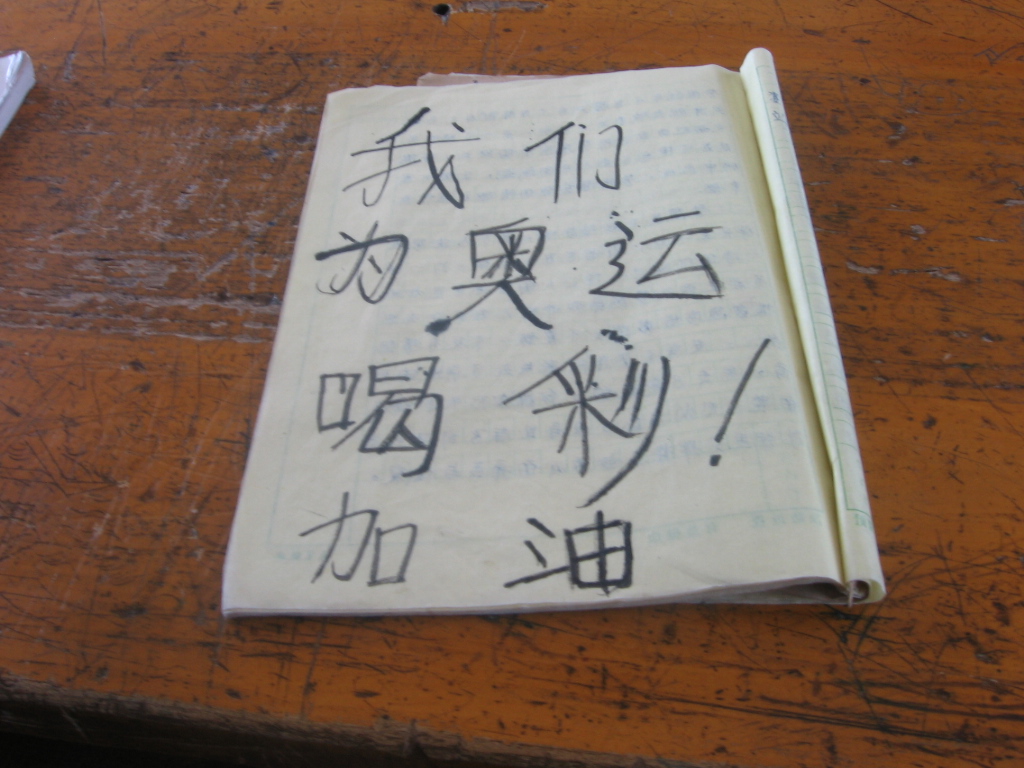 我们
为奥运
喝彩！
加油